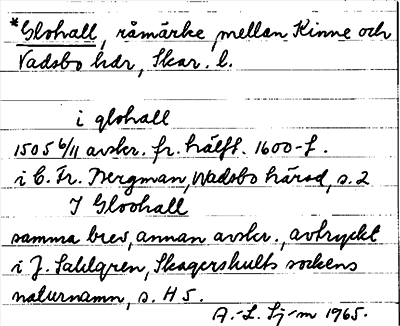 *Glohall, råmärke, mellan Kinne och
Vadsbo hdr, Skar. l.
i glohall
1505 6/11 avskr. fr. hälft. 1600-t.
i C. Fr. Bergman, Wadsbo härad, s. 2
I Gloohall
samma brev, annan avskr., avtryckt
i J. Sahlgren, Skagershults sockens
naturnamn, s. H 5.
A.-L. Lj-m 1965.